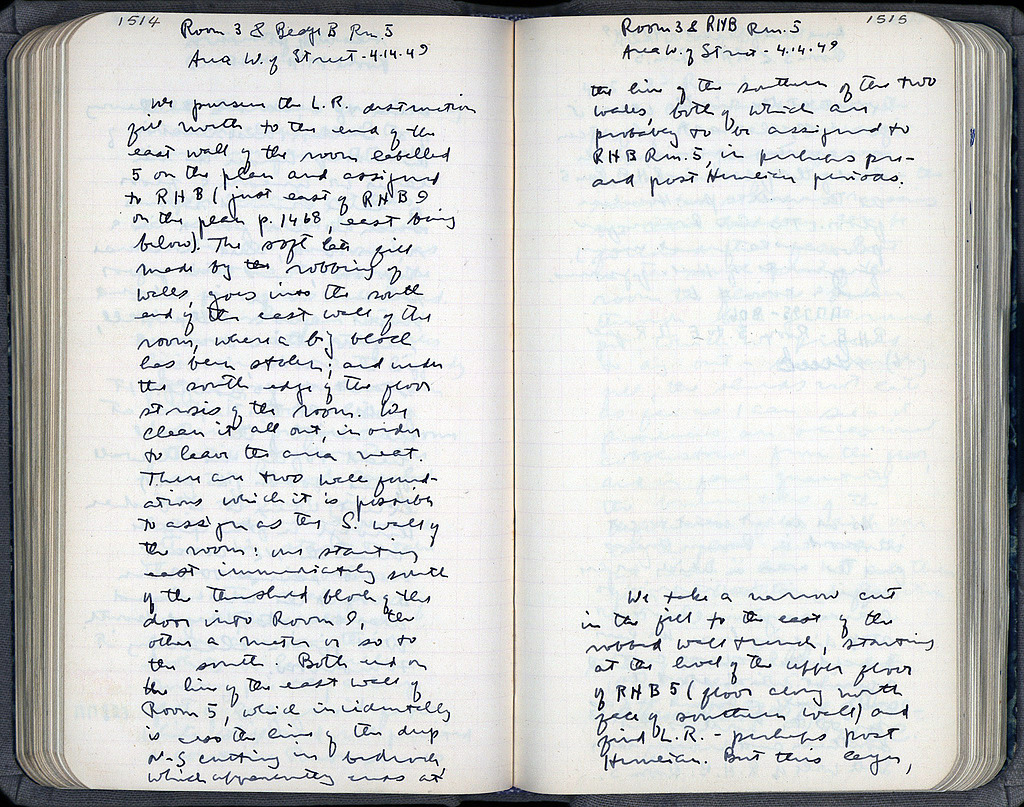 1514
Room 3 & Bldg B Rm. 5
Area W. of Street - 4.14.49
We pursue the L.R. destruction
fill north to the end of the
east wall of the room labelled
5 on the plan and assigned
to RHB (just east of RHB 9
on the plan p. 1468, east being
below). The soft late fill
made by the robbing of
walls, goes into the south
end of the east wall of the
room, where a big block
has been stolen; and under
the south edge of the floor
strosis of the room. We
clean it all out, in order
to leave the area neat.
There are two wall found-
ations which it is possible
to assign as the S. wall of
the room: one starting
east immediately south
of the threshold block of the
door into Room 9, the
other a meter or so to
the south. Both end on
the line of the east wall of
Room 5, which incidentally
is also the line of the deep
N-S cutting in bedrock,
which apparently ends at
1515
Room 3 & RHB Rm. 5
Area W. of Street - 4.14.49
the line of the southern of the two
walls, both of which are
probably to be assigned to
RHB Rm. 5, in perhaps pre-
and post Herulian periods.
We take a narrow cut
in the fill to the east of the
robbed wall trench, starting
at the level of the upper floor
of RHB 5 (floor along north
face of southern wall) and
find L.R. - perhaps post
Herulian. But this layer,